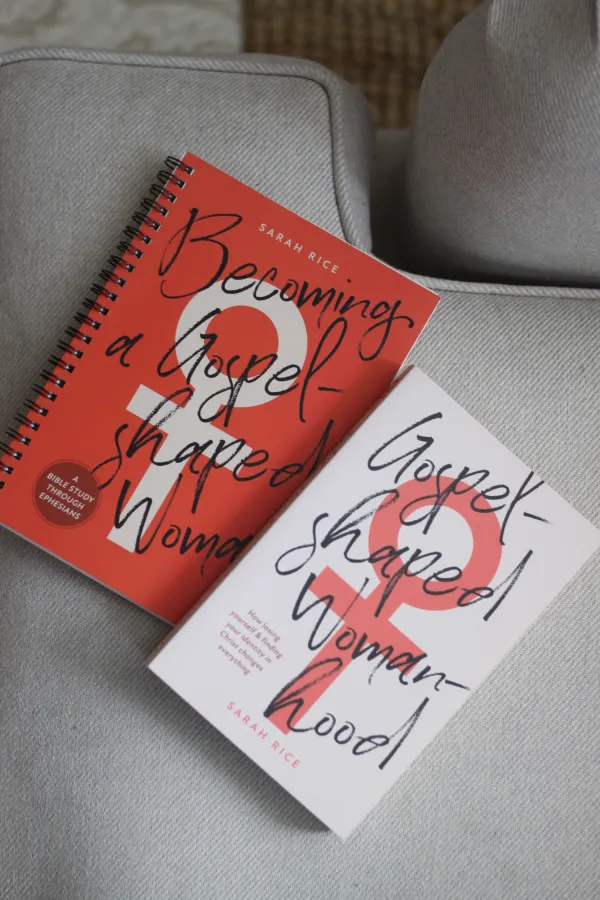 SARAH RICE
Becoming
a Gospel-
shaped
Woma
A
BIBLE STUDY
THROUGH
EPHESIANS
Gospel-
shaped
Woman-
hood
How losing
yourself & finding
your identity in
Christ changes
everything
SARAH RICE